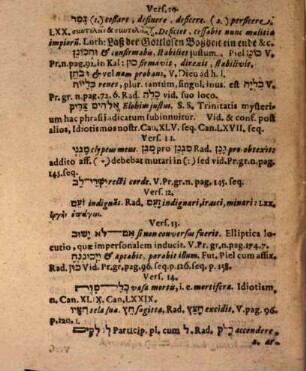 Vers. 10.
גָּמַר (1.) cessare, desinere, desicere. (2.) perficere,
LXX. Deficiet, cessabit nunc malitia
impiorū. Luth: Laß der Gottlosen Boßheit ein ende &c.
& confirmabis, stabilies justum. Piel כונן V.
Pr.gr.n.pag.91. in Kal: כון firmavit, direxit, stabilivit.
& vel nam probans, V. Dieu ad h.l.
כליות renes, plur. tantum, singul. inus. est כליה V. Pr.
Gr. n. pag. 72. 6. Rad. כלה vid. suo loco.
אלהים צדיק Elohim justum. S.S. Trinitatis mysterium
hac phrasi indicatum subinnuitur. Vid. & conf. post
alios, Idiotismos nostr. Cau. XLV. seq. Can. LXVII, seq.
Vers. 11.
מגני clypeus meus. מגן pro Rad. גנן pro-obtexit:
addito aff. debebat mutari in sed vid. Pr.gr.n.pag.
141. seq.
ישרי לב recti corde. V. Pr.gr.n.pag.145. seq.
Vers. 12.
זעם indignās. Rad. זעם indignari, irasci, minari: LXX.
Vers. 13.
אם לא ישוב si non conversus fuerit. Elliptica locutio,
quæ impersonalem inducit. V. Pr. Gr. n. pag. 174. 7.
ויכוננה & aptabit, parabit illum. Fut. Piel cum affix.
Rad. כון Vid. Pr. gr. pag. 96. seq. n. 116. seq. p. 158.
Vers. 14.
כלי מות vasa mortis, i.e. mortifera. Idiotism.
n. Can. XLIX. Can. LXXIX.
חציו tela sua. חץ sagitta, Rad. חצץ excidit. V. pag. 96.
p. 120. 1.
לדלקים Particip. pl. cum ל. Rad. דלק accendere